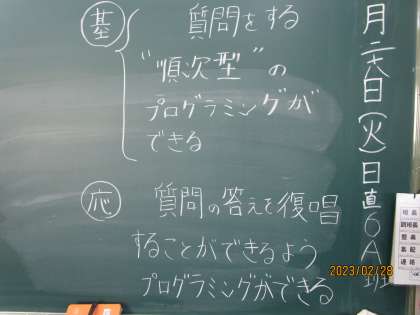 月二八日(火)日直6A班
基 質問をする
"順次型"の
プログラミングが
できる
応 質問の答えを復唱
することができるよう
プログラミングができる
班長
副班長
2023/02/28